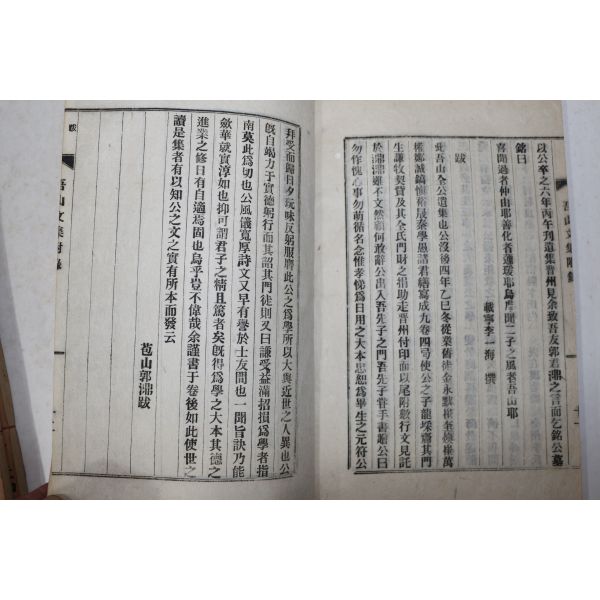 以公卒之六年丙午刊遺集晋州見余致吾友郭君㴻之言而乞銘公墓
銘曰
喜聞過者仲由耶善化者蘧瑗耶烏虖聞二子之風者吾山耶
載寧李一海 撰
跋
此吾山全公遺集也公沒後四年乙巳冬從
公之子龍埰齎其門
生謙牧契貲及其全氏門財之捐助走晋州付印而以尾附敢行文見託
於㴻㴻雖不文然顧何敢辭公出入吾先子之門吾先子嘗手書贈公曰
勿作愧心事勿萌循名念惟孝悌爲日用之大本忠恕爲畢生之元符公
吾山文集附錄
拜受而歸日夕玩味反躬服膺此公之爲學所以大異近世之人異也公
旣自竭力于實德躬行而其詔其門徒則又曰謙受益滿招損爲學者指
南莫此爲切也公風儀寬厚詩文又早有譽於士友間也一聞旨訣乃能
斂華就實淳如也抑可謂君子之精且篤者矣旣得爲學之大本其德之
進業之修日有自適焉固也烏乎豈不偉哉余謹書于卷後如此使世之
讀是集者有以知公之文之實有所本而發云
苞山郭㴻跋
吾山文集附錄
跋